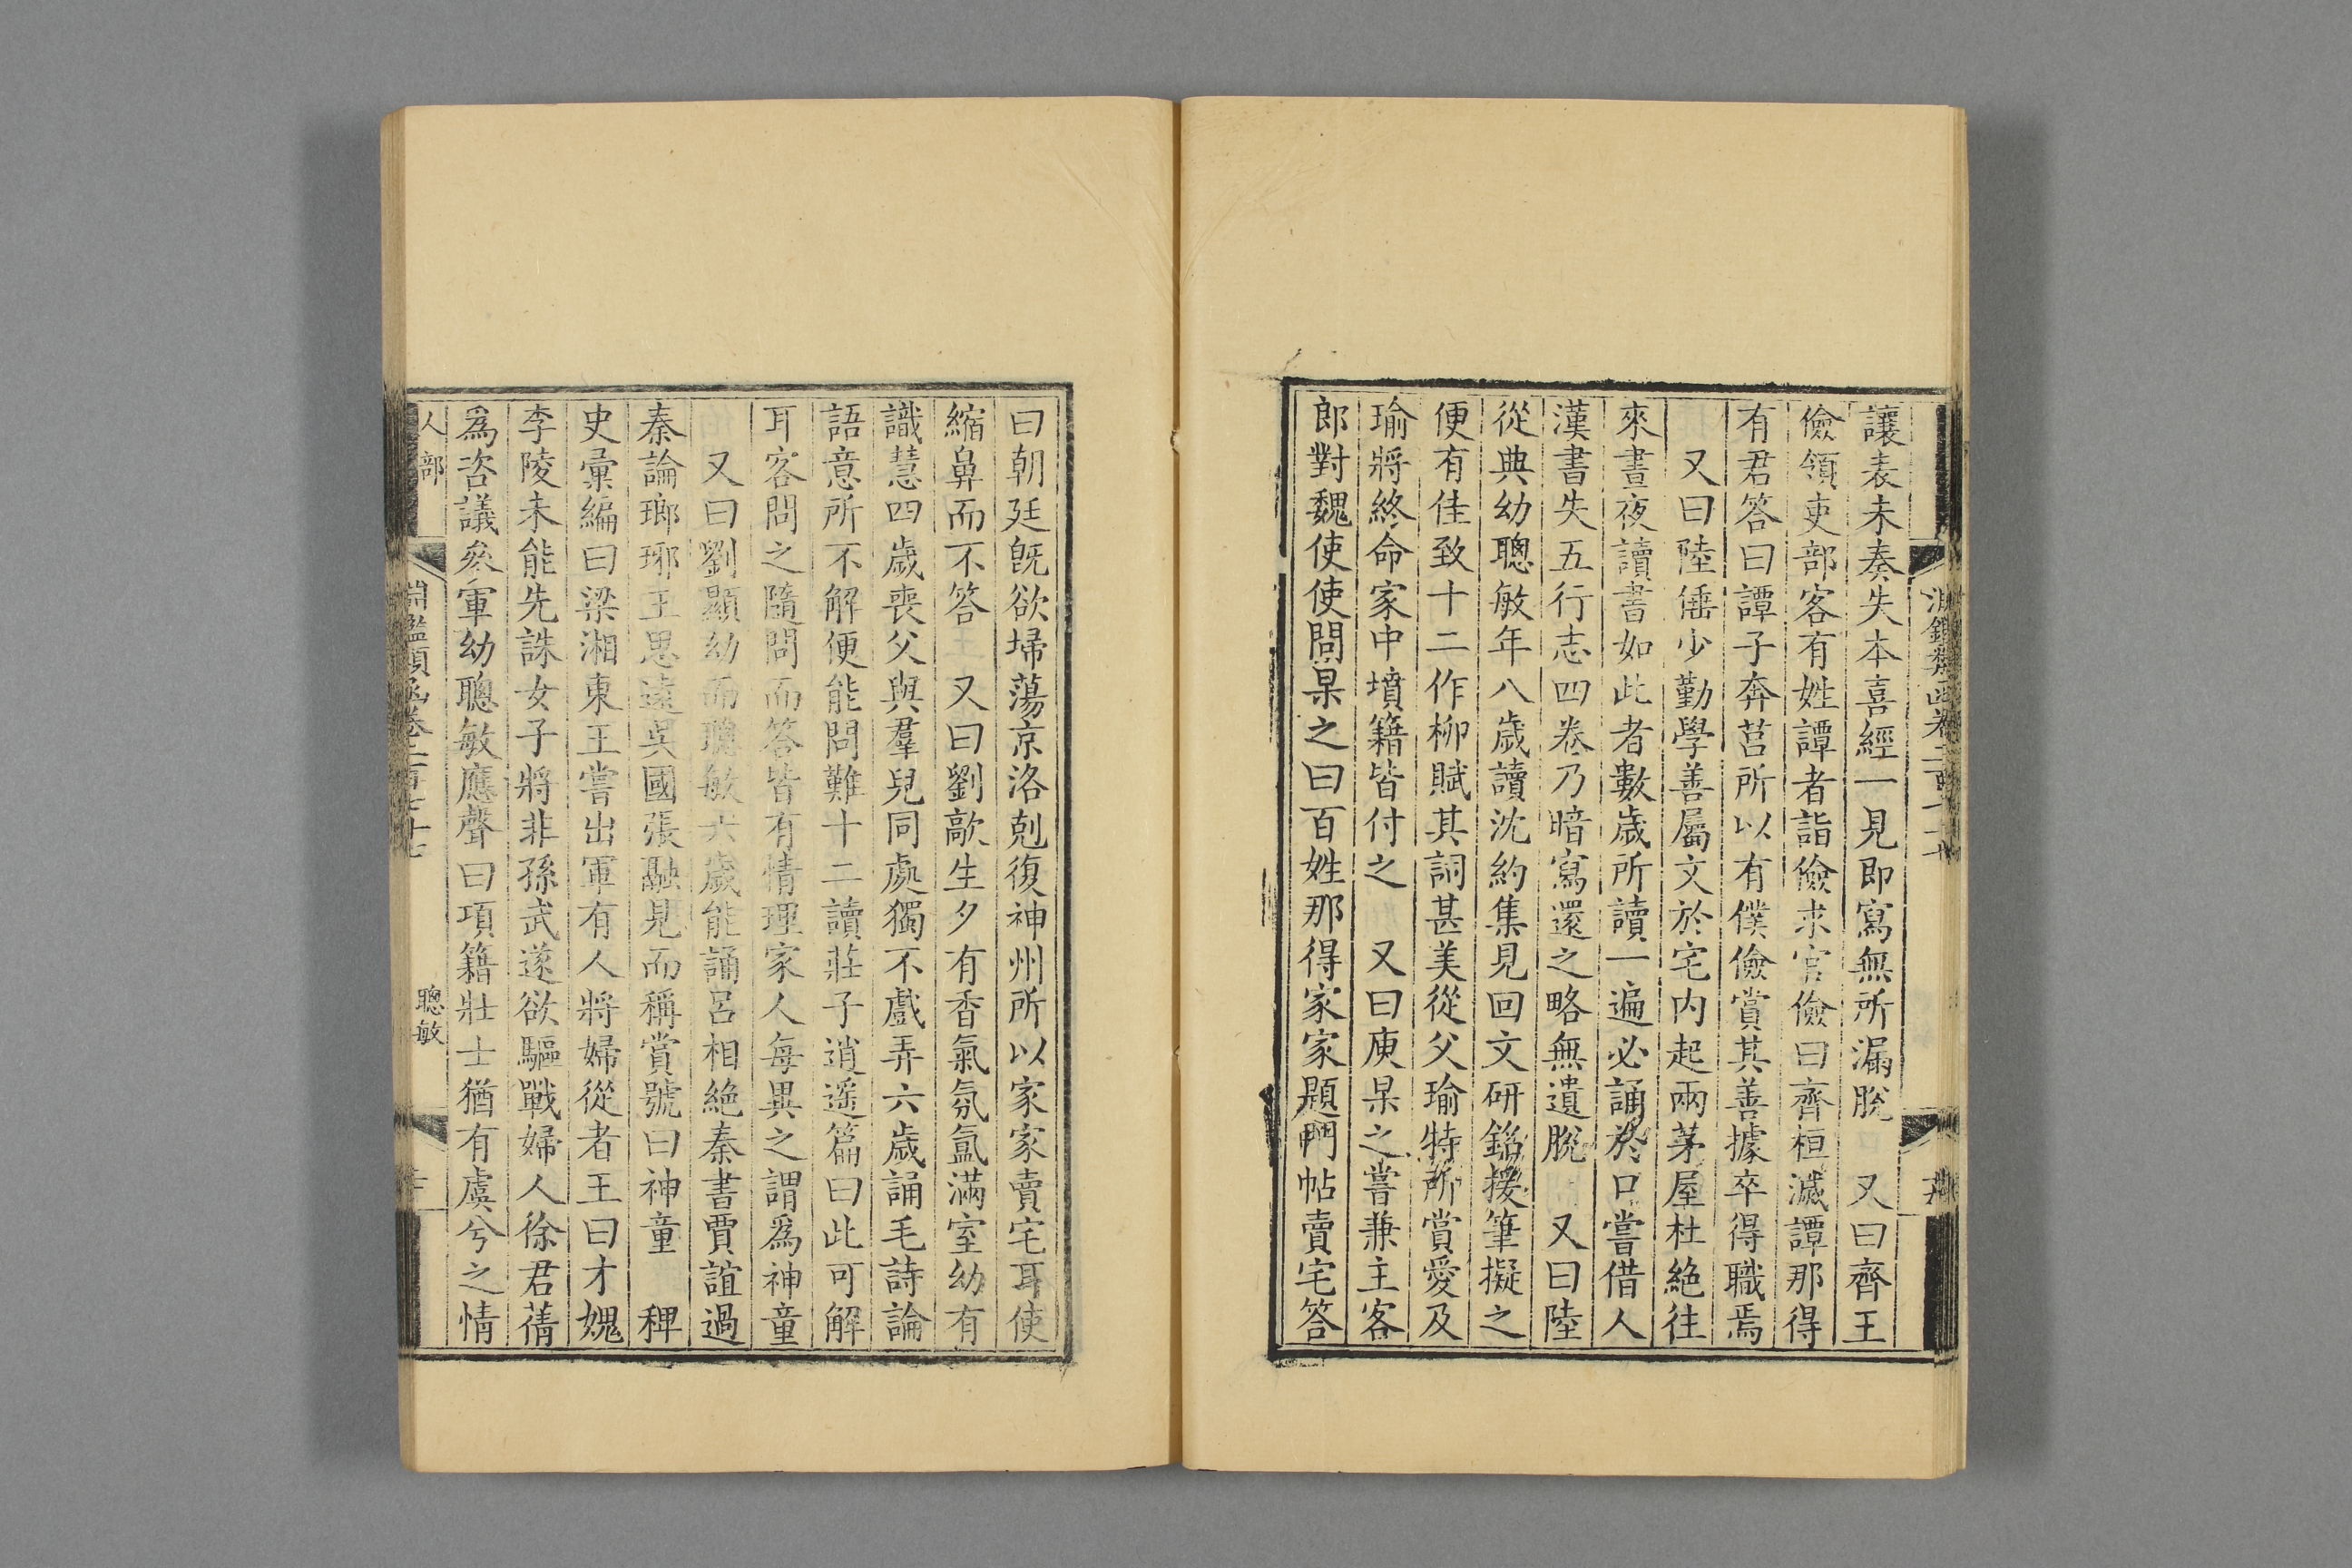 讓表未奏失本喜經一見即寫無所漏脫　又曰齊王
儉領吏部客有姓譚者詣儉求官儉曰齊桓滅譚那得
有君答曰譚子奔莒所以有僕儉賞其善據卒得職焉
又曰陸倕少勤學善屬文於宅內起兩茅屋杜絕往
來晝夜讀書如此者數歲所讀一遍必誦於口嘗借人
漢書失五行志四卷乃暗寫還之略無遺脫　又曰陸
從典幼聰敏年八歲讀沈約集見回文研銘援筆擬之
便有佳致十二作柳賦其詞甚美從父瑜特所賞愛及
瑜將終命家中墳籍皆付之　又曰庾杲之嘗兼主客
郎對魏使使問杲之曰百姓那得家家題門帖賣宅答
曰朝廷既欲埽蕩京洛剋復神州所以家家賣宅耳使
縮鼻而不答　又曰劉歊生夕有香氣氛氳滿室幼有
識慧四歲喪父與羣兒同處獨不戲弄六歲誦毛詩論
語意所不解便能問難十二讀莊子逍遙篇曰此可解
耳客問之隨問而答皆有情理家人每異之謂為神童
又曰劉顯幼而聰敏六歲能誦呂相絕秦書賈誼過
秦論瑯琊王思遠吳國張融見而稱賞號曰神童　稗
史彙編曰梁湘東王嘗出軍有人將婦從者王曰才媿
李陵未能先誅女子將非孫武遂欲驅戰婦人徐君蒨
為咨議參軍幼聰敏應聲曰項籍壯士猶有虞兮之情
人部
淵鑑類函卷二百七十七
聰敏